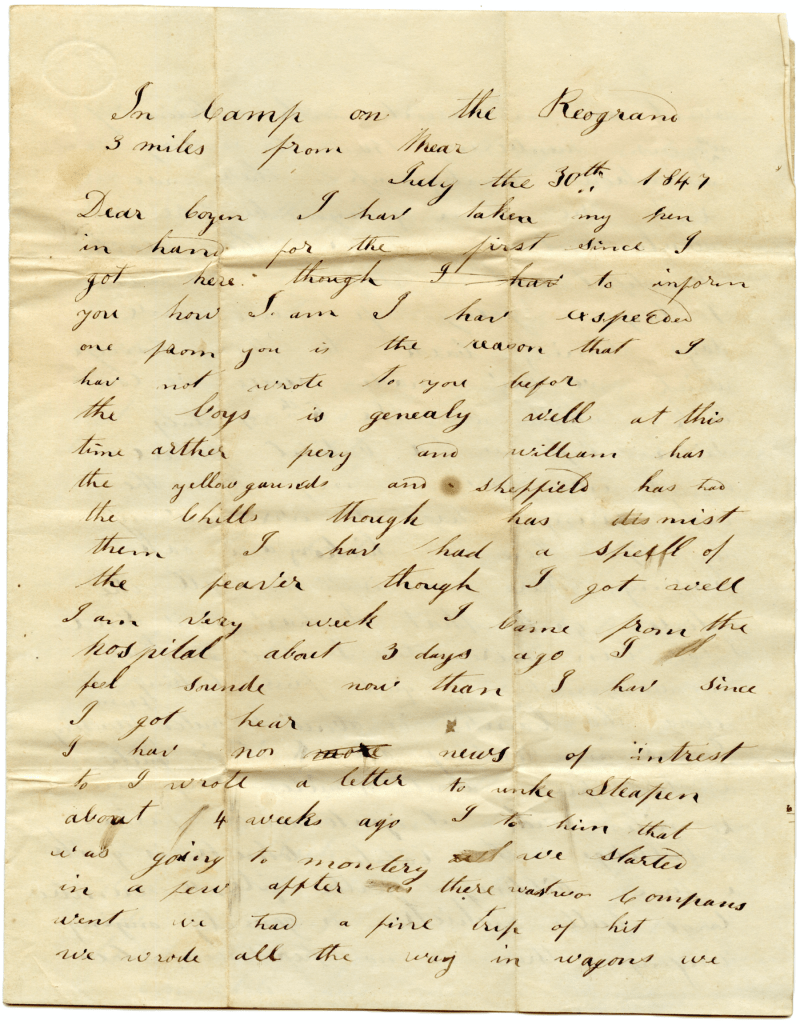 In Camp on the Reogrand
3 miles from Mear
July the 30th 1847
Dear Cozen I hav taken my pen
in hand for the first since I
got here though I hav to inform
you how I am I hav expected
one from you is the reason that I
hav not wrote to you befor
the Boys is genealy well at this
time arther pery and william has
the yellow gaunds and sheffield has had
the Chills though has dismist
them I hav had a spell of
the feaver though I got well
I am very week I Came from the
hospital about 3 days ago I
feel sounde now than I hav since
I got hear
I hav no more news of intrest
to I wrote a letter to unke Steapen
about 4 weeks ago I to him that
was going to montery we started
in a few affter as there was two Compans
went we had a fine trip of hit
we wrode all the way in wagons we